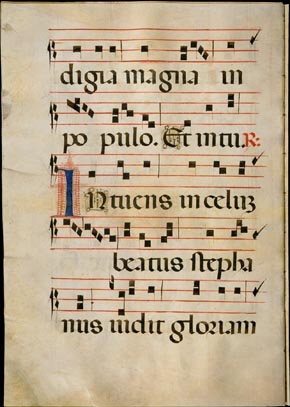 digia magna in
po pulo. Et intu R:
Ntuens in celuz
beatus stepha
nus uidit gloriam